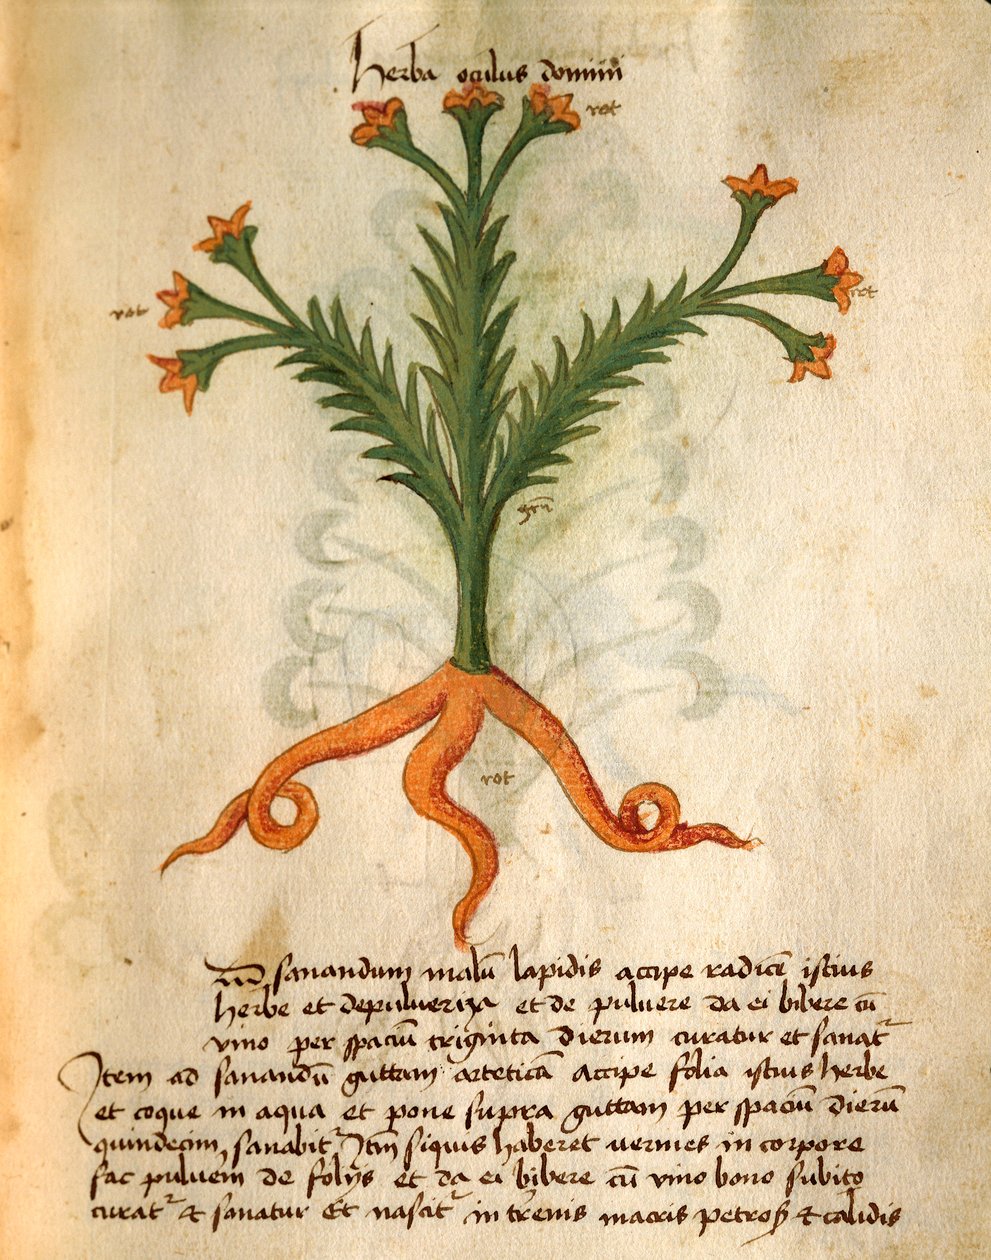 Herba oculus domini
rot
rot
rot
grū
rot
Ad sanandum malū lapidis accipe radicē istius
herbe et depulueriza et de puluere da ei bibere cū
vino per spaciū triginta dierum curatur et sanat᷑
Item ad sanandū guttam arteticā accipe folia istius herbe
et coque in aqua et pone supra guttam per spaciū dierū
quindecim sanabit᷑ Itm̄ siquis haberet uermes in corpore
fac puluem de folijs et da ei bibere cū vino bono subito
curat᷑ & sanatur Et nascit᷑ in tr̄enis macris petroꝭ & calidis